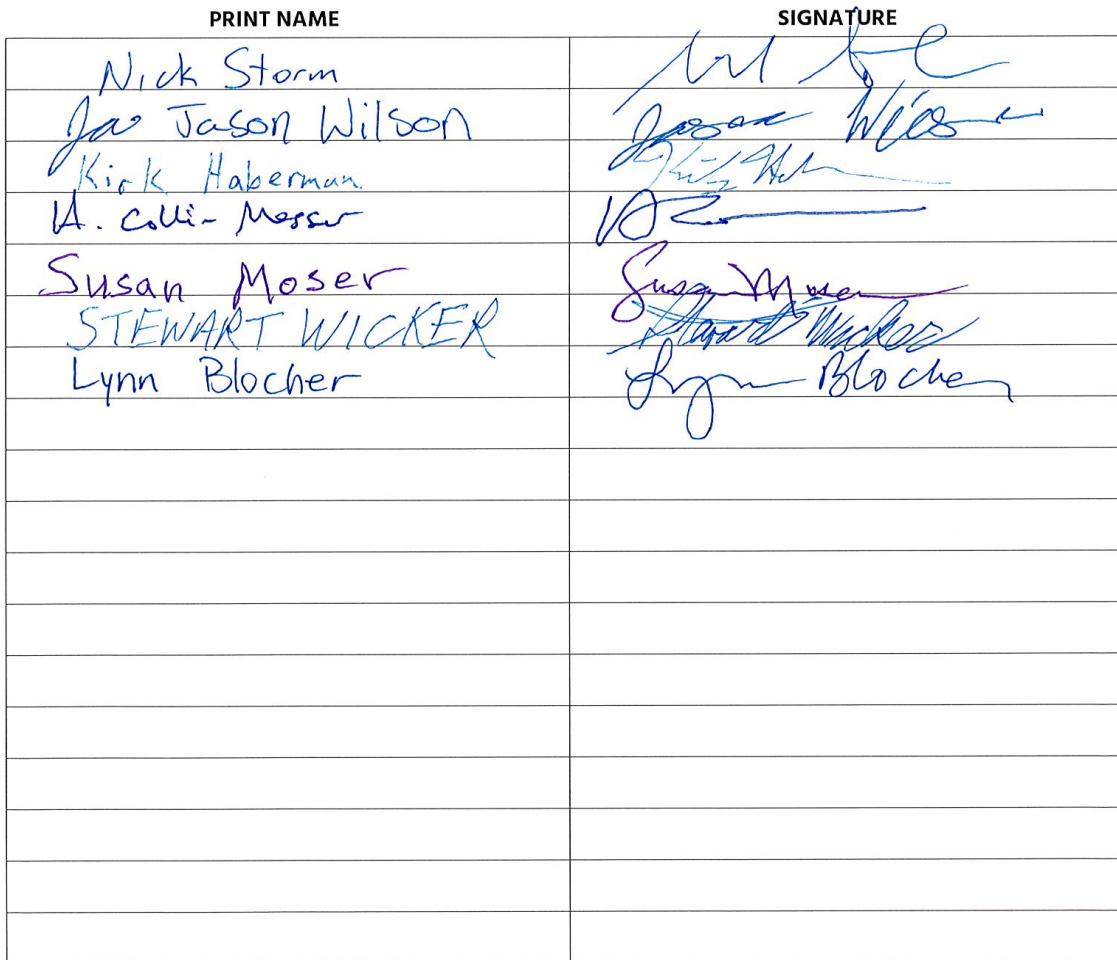 PRINT NAME SIGNATURE
Nick Storm
Jason Wilson Jason Wilson
Kirk Haberman
A. Colli- Messer
Susan Moser Susan Moser
STEWART WICKER Stewart Wicker
Lynn Blocher Lynn Blocher